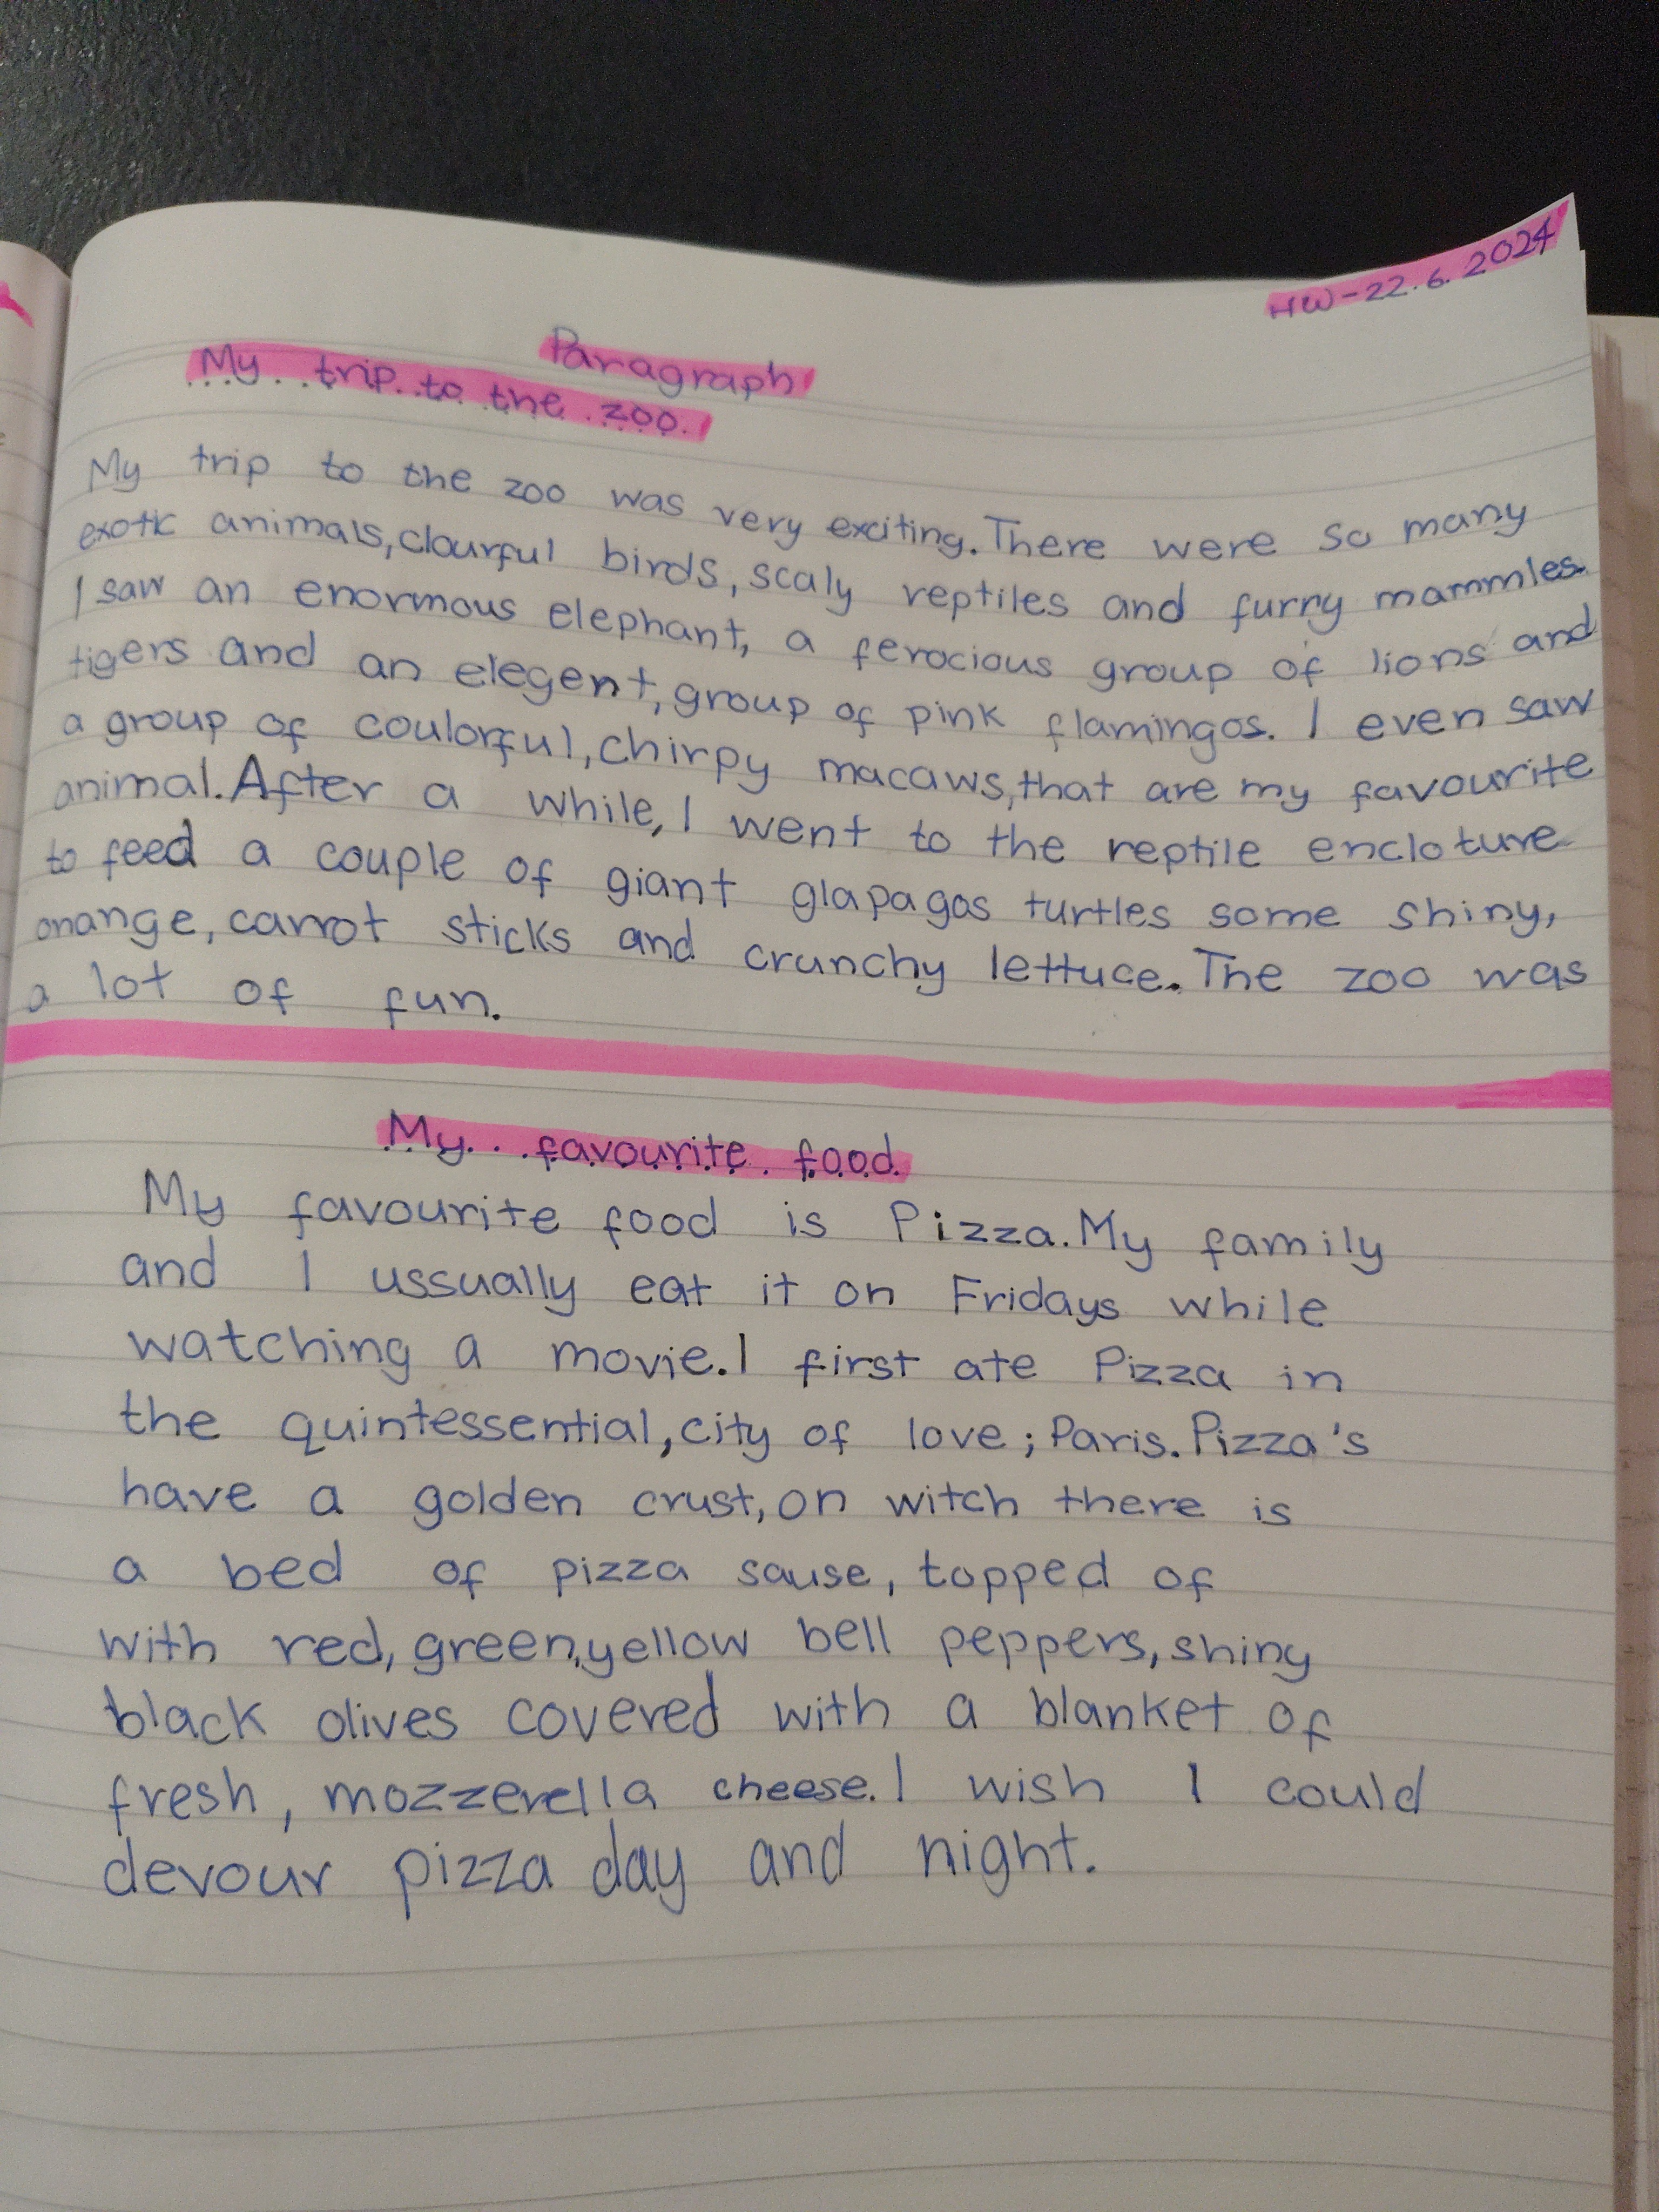 HW-22.6.2024
Paragraph
My trip to the zoo.
My trip to the zoo was very exciting. There were so many
exotic animals, clourful birds, scaly reptiles and furry mammles.
I saw an enormous elephant, a ferocious group of lions and
tigers and an elegent, group of pink flamingos. I even saw
a group of coulorful, chirpy macaws, that are my favourite
animal. After a while, I went to the reptile encloture
to feed a couple of giant glapagos turtles some shiny,
orange, carrot sticks and crunchy lettuce. The zoo was
a lot of fun.
My favourite food
My favourite food is Pizza. My family
and I ussually eat it on Fridays while
watching a movie. I first ate Pizza in
the quintessential, city of love; Paris. Pizza's
have a golden crust, on witch there is
a bed of pizza sause, topped of
with red, green, yellow bell peppers, shiny
black olives covered with a blanket of
fresh, mozzerella cheese. I wish I could
devour pizza day and night.